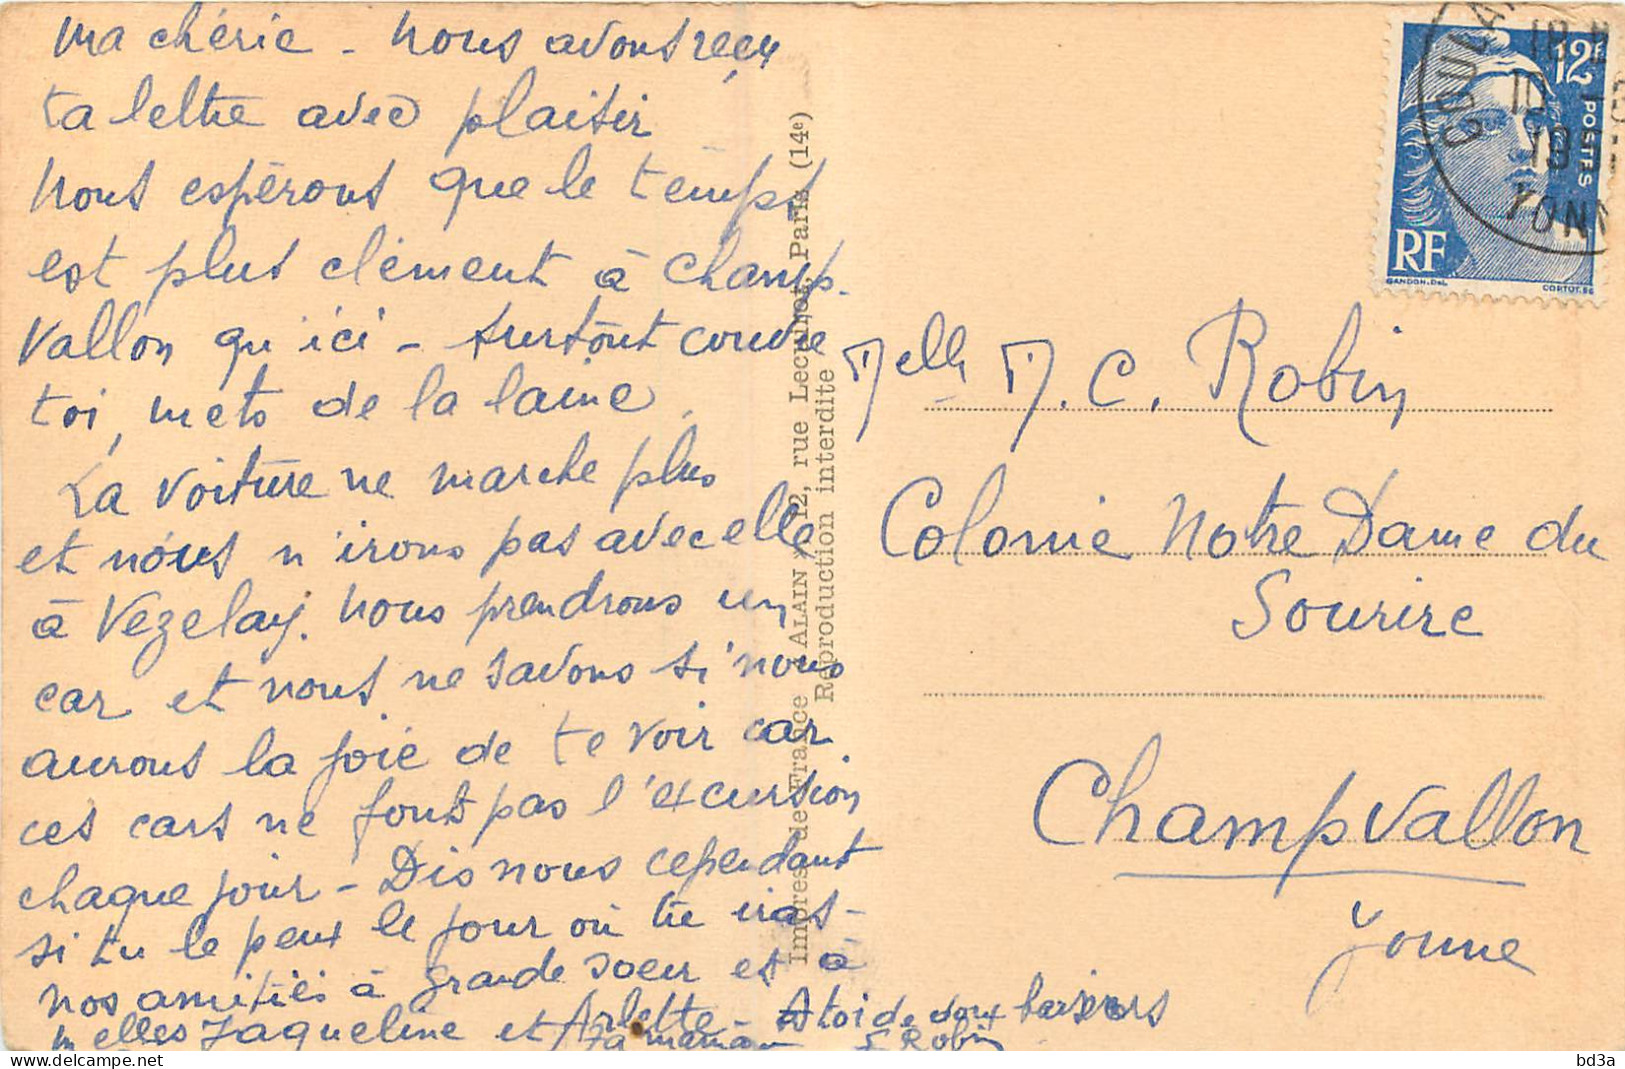 Ma chérie - Nous avons reçu
ta lettre avec plaisir
Nous espérons que le temps
est plus clément à Champ-
vallon qu'ici - surtout couvre
toi, mets de la laine.
La voiture ne marche plus
et nous n'irons pas avec elle
à Vezelay. Nous prendrons un
car et nous ne savons si nous
aurons la joie de te voir car
ces cars ne font pas l'excursion
chaque jour - Dis nous cependant
si tu le peux le jour où tu iras -
nos amitiés à grande soeur et à
Melles Jaqueline et Arlette - A toi de doux baisers
Ta maman E Robin
Impres. de France - ALAIN, 12, rue Lecuirot, Paris (14e)
Reproduction interdite
12F
POSTES
RF
GANDON.DEL.
CORTOT.SC
COULAN
18 H
10
195
YONN
Melle M. C. Robin
Colonie Notre Dame du
Sourire
Champvallon
Yonne
bd3a